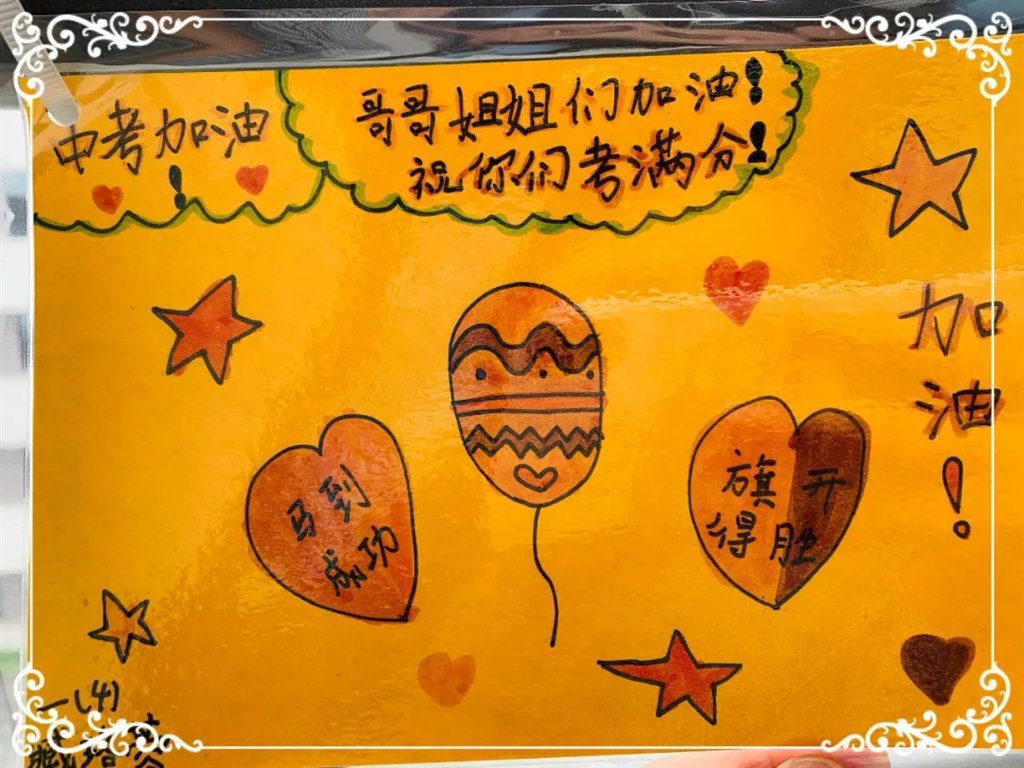 中考加油
!
哥哥姐姐们加油!
祝你们考满分!
加
油
!
马到
成功
旗开
得胜
一(4)